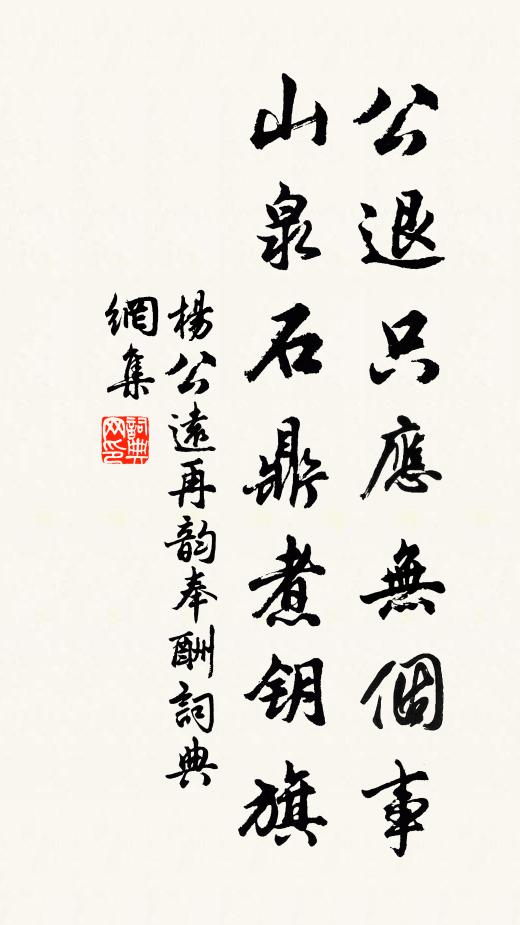 公退只應無個事
山泉石鼎煮钥旗
楊公遠再韵奉酬詞典
網集
詞典
网印